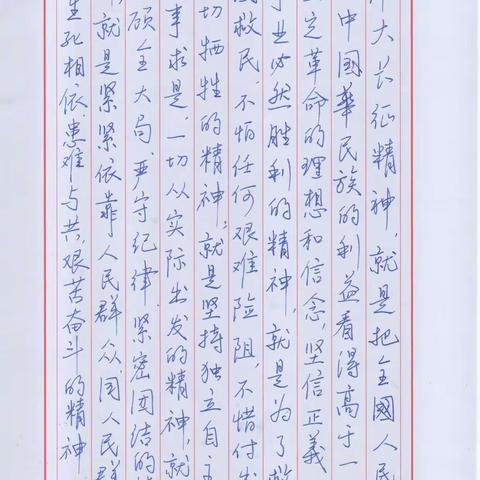 大长征精神,就是把全國人民
中國華民族的利益看得高于一
定革命的理想和信念,坚信正義
业必然胜利的精神,就是为了救
救民,不怕任何艰难险阻,不惜付出
切牺牲的精神;就是坚持独立自主
事求是,一切从实际出发的精神,就
顾全大局、严守纪律、紧密团结的
就是紧紧依靠人民群众,同人民群
生死相依、患难与共,艰苦奋斗的精神